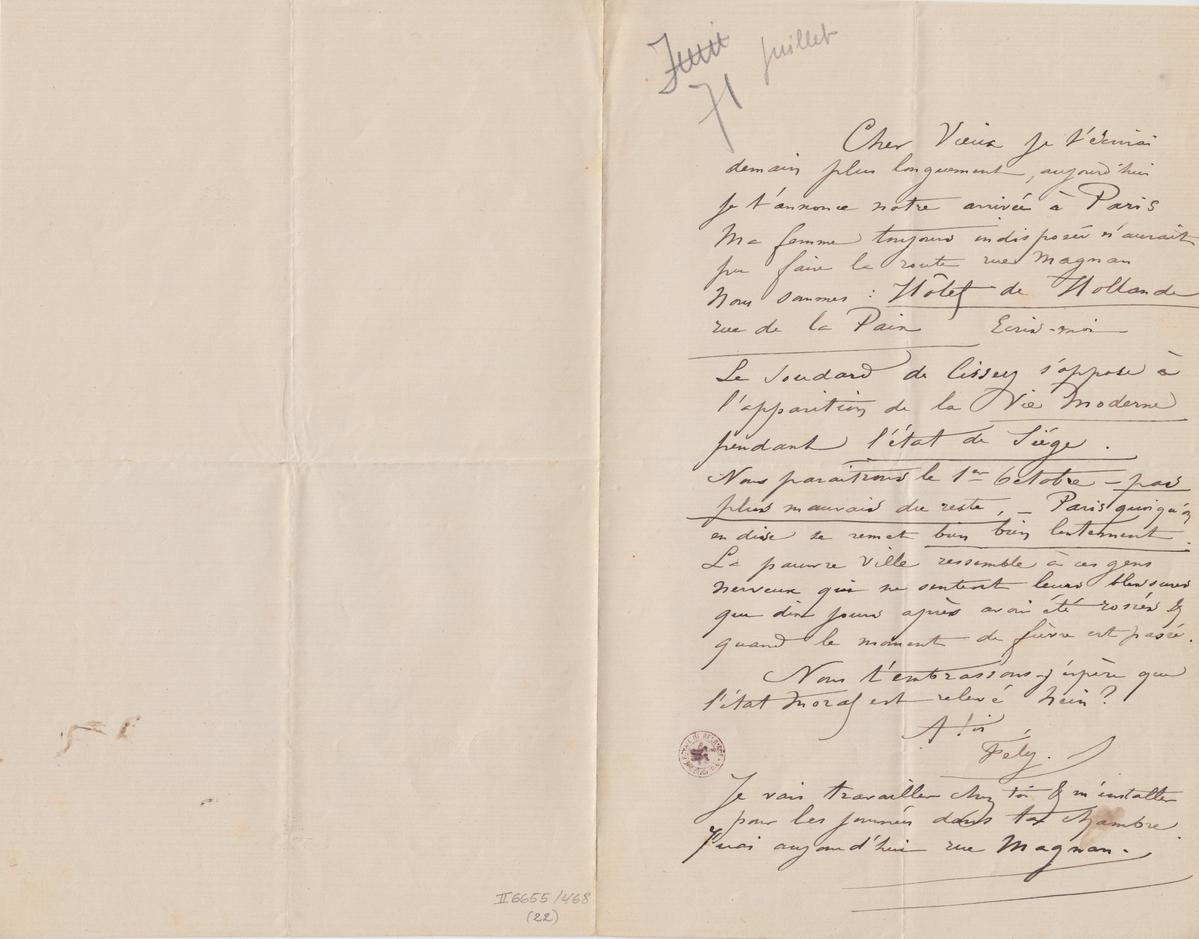 Juin juillet
71
Cher Vieux je t'écrirai
demain plus longuement, aujourd'hui
je t'annonce notre arrivée à Paris
Ma femme toujours indisposée n'aurait
pu faire la route rue Magnan
Nous sommes : Hôtel de Hollande
rue de la Paix Ecris-moi
Le Soudard de Cissey s'oppose à
l'apparition de la Vie Moderne
pendant l'état de Siége.
Nous paraitrons le 1er Octobre - pas
plus mauvais du reste, - Paris quoiqu'on
en dise se remet bien bien lentement.
La pauvre ville ressemble à ces gens
nerveux qui ne sentent leurs blessures
que dix jours après avoir été rossés &
quand le moment de fièvre est passé.
Nous t'embrassons - j'espère que
l'état moral est relevé hein ?
A toi
Fély.
Je vais travailler chez toi & m'installer
pour les journées dans ta chambre.
J'irai aujourd'hui rue Magnan.
II 6655/468
(22)